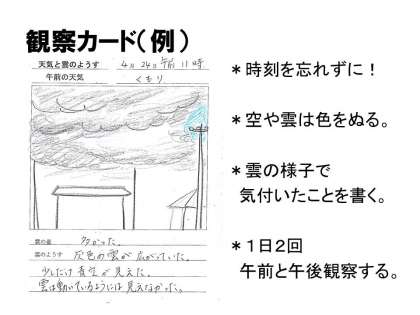 観察カード(例)
天気と雲のようす 4月24日午前11時
午前の天気 くもり
雲の量 多かった。
雲のようす 灰色の雲が広がっていた。
少しだけ青空が見えた。
雲は動いているようには見えなかった。
＊時刻を忘れずに！
＊空や雲は色をぬる。
＊雲の様子で
気付いたことを書く。
＊１日２回
午前と午後観察する。